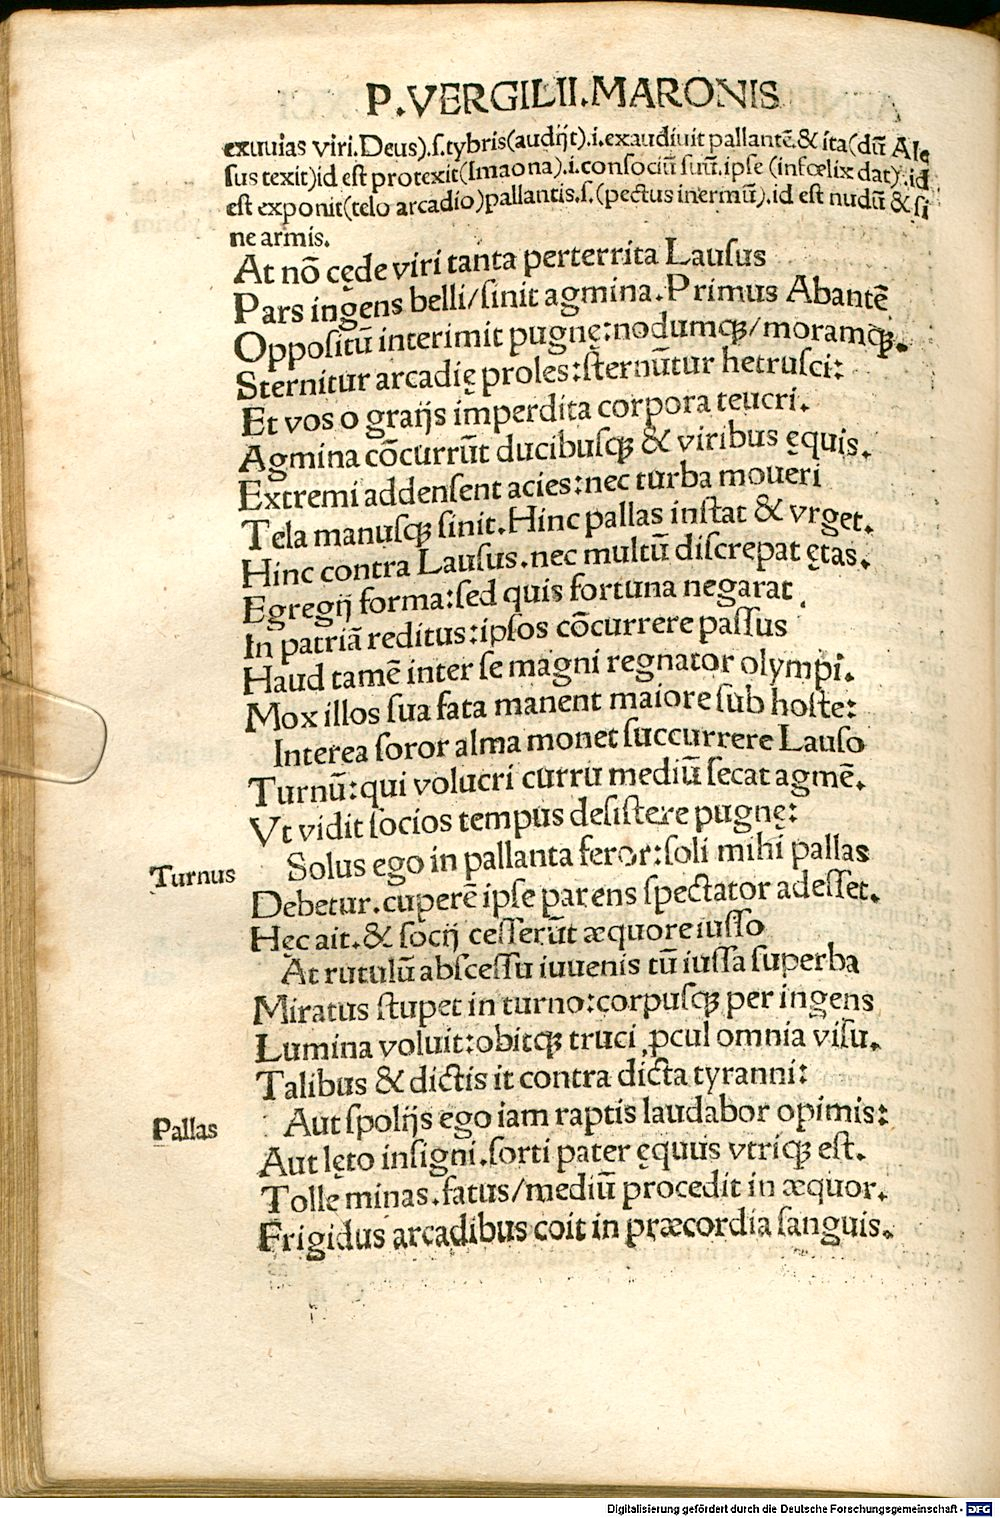 P.VERGILII.MARONIS
exuuias viri.Deus).ſ.tybris(audijt).i.exaudiuit pallantē.& ita(dū Ale
ſus texit)id eſt protexit(Imaona).i.conſociū ſuū.ipſe (infœlix dat).id
eſt exponit(telo arcadio)pallantis.ſ.(pectus inermū).id eſt nudū & ſi
ne armis.
At nō cęde viri tanta perterrita Lauſus
Pars ingens belli/ſinit agmina.Primus Abantē
Oppoſitū interimit pugnę:nodumqꝫ/moramqꝫ.
Sternitur arcadię proles:ſternūtur hetruſci:
Et vos o graijs imperdita corpora teucri.
Agmina cōcurrūt ducibuſqꝫ & viribus ęquis.
Extremi addenſent acies:nec turba moueri
Tela manuſqꝫ ſinit.Hinc pallas inſtat & vrget.
Hinc contra Lauſus.nec multū diſcrepat ętas.
Egregij forma:ſed quis fortuna negarat
In patriā reditus:ipſos cōcurrere paſſus
Haud tamē inter ſe magni regnator olympi.
Mox illos ſua fata manent maiore ſub hoſte:
Interea ſoror alma monet ſuccurrere Lauſo
Turnū:qui volucri curru mediū ſecat agmē.
Vt vidit ſocios tempus deſiſtere pugnę:
Turnus Solus ego in pallanta feror:ſoli mihi pallas
Debetur.cuperē ipſe parens ſpectator adeſſet.
Hęc ait.& ſocij ceſſerūt æquore iuſſo
At rutulū abſceſſu iuuenis tū iuſſa ſuperba
Miratus ſtupet in turno:corpuſqꝫ per ingens
Lumina voluit:obitqꝫ truci ꝓcul omnia viſu.
Talibus & dictis it contra dicta tyranni:
Pallas Aut ſpolijs ego iam raptis laudabor opimis:
Aut lęto inſigni.ſorti pater ęquus vtriqꝫ eſt.
Tolle minas.fatus/mediū procedit in æquor.
Frigidus arcadibus coit in præcordia ſanguis.
Digitalisierung gefördert durch die Deutsche Forschungsgemeinschaft - DFG